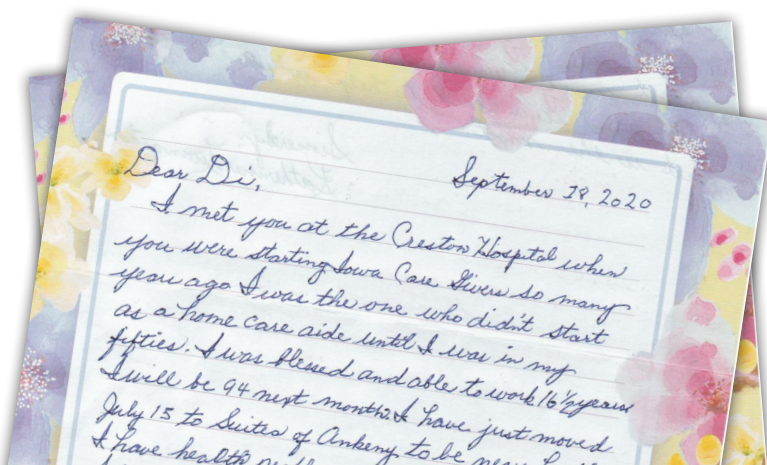 Dear Di,
September 18, 2020
I met you at the Creston Hospital when
you were starting Iowa Care Givers so many
years ago I was the one who didn't start
as a home care aide until I was in my
fifties. I was blessed and able to work 16 1/2 years
I will be 94 next month. I have just moved
July 15 to Suites of Ankeny to be near
I have health